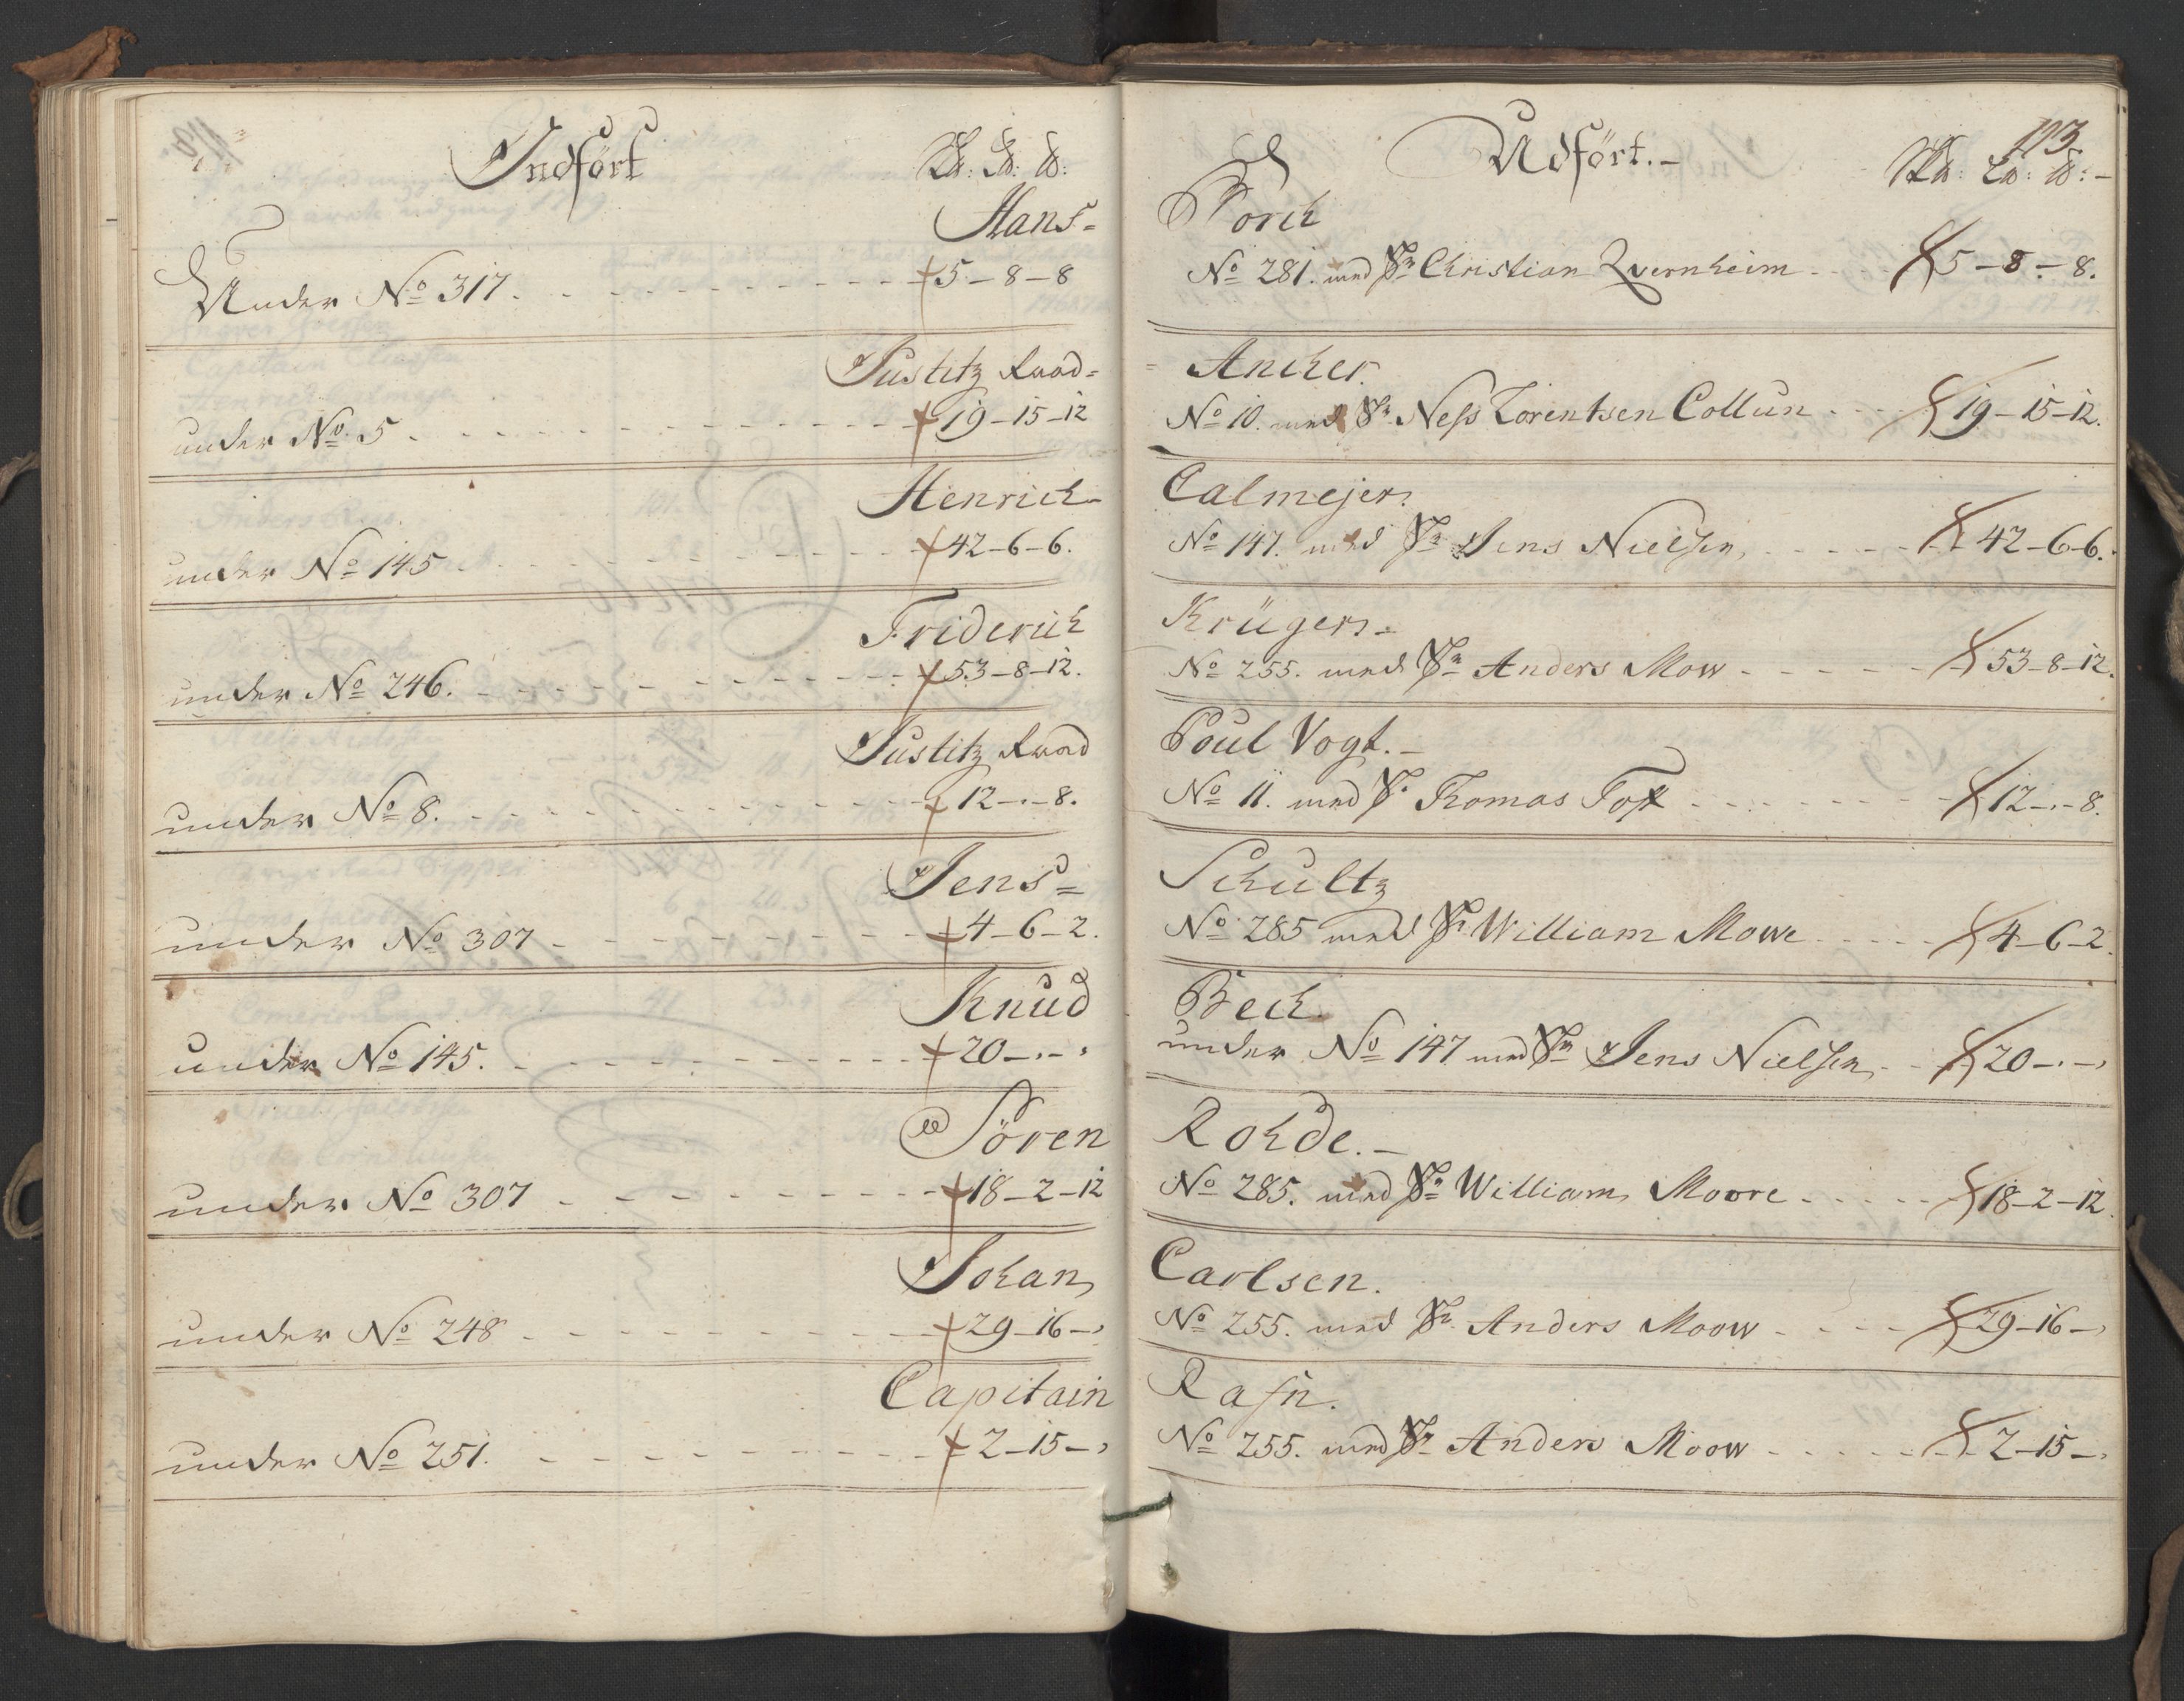 Indført
Hans=
Under No 317. 5-8-8
Justitz Raad=
under No. 5 19-15-12
Henrich
under No 145 42-6-6.
Friderich
under No 246. 53-8-12.
Justitz Raad
under No 8. 12-..-8.
Jens=
under No 307 4-6-2.
Knud
under No 145. 20-..-,
Søren
under No 307 18-2-12
Johan
under No 248 29-16-,
Capitain
under No 251. 2-15-,
113
Udført.-
No 281. med Christian 5-8-8.
Ancher.
No 10. med Lorentsen Collun 19-15-12.
Calmejer.
No 147. med Jens Nielsen 42-6-6.
Krüger.
No 255. med Anders Mow 53-8-12.
Poul Vogt.-
No 11. med Thomas 12-..-8.
Schultz
No 285 med William Mowe 4-6-2.
Bech.
under No 147 med Jens Nielsen 20-..-,
Rohde.-
No 285. med William Moore 18-2-12.
Carlsen.
No 255. med Anders Moow 29-16-,
Rafn.
No 255. med Anders Moow 2-15-,